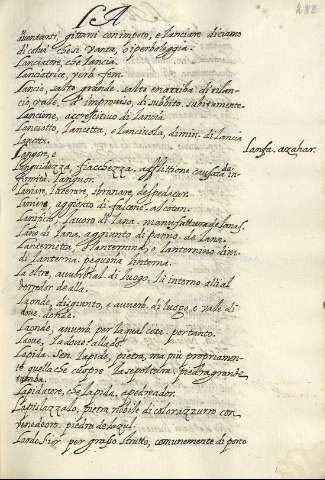 LA
283
auentarsi, gittarsi con impeto, e lanciare diciamo
di colui che si vanta, o iperboleggia.
Lanciatore, che lancia.
Lanciatrice, verb. fem.
Lancio, salto grande. salto en arriba. di rilan-
cio vale, d'improuiso, di subbito, subitamente.
Lancione, accrescitiuo di Lancia
Lanciotto, Lancetta, e Lanciuola, dimin. di Lancia
Lanfa, azahar.
Languore, e
Languidezza, fiacchezza, afflittione causata da in-
firmità. Langor.
Laniare, lacerare, sbranare, despedaçar.
Laniere, aggionto di falcone. alcotan.
Lanificio, lauoro di lana. manufattura de lanas.
Lano di lana, aggiunto di panno. de lana.
Lanternetta, lanternino, e lanternino dim.
di Lanterna. pequeña linterna.
La oltre, auuerbial. di luogo, là interno all'al
derredor de alla.
Laonde, disgiunto, e auuerb. di luogo, e vale di
doue, donde.
Laonde, auuerb. per la qual cosa. portanto.
Laoue, la doue. alla do.
Lapida. sen Lapide, pietra, ma più propriamen-
te quella che cuopre la sepoltura. piedra grande
tumba.
Lapidatore, che lapida, apedreador.
Lapislazzalo, pietra nobile di color azzurro con
vene d'oro. piedra de lazul.
Lardo Sust. per grasso strutto, comunemente di porco